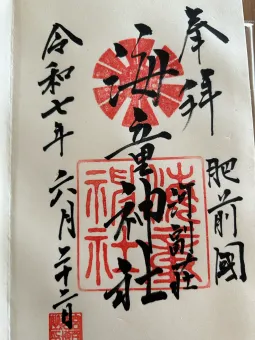 奉拝
肥前國
河副荘
海童神社
令和七年 六月二十二日
海童
神社